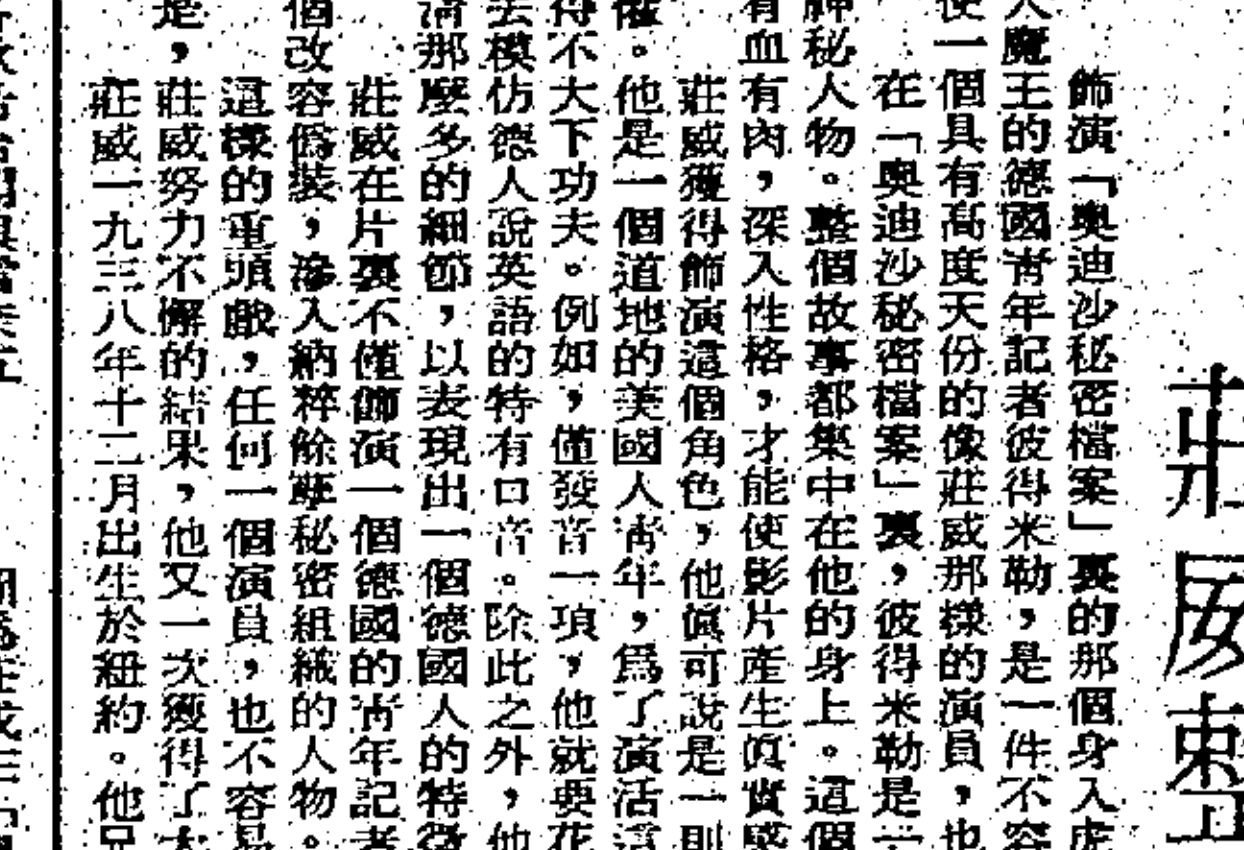 莊威東
飾演「奧迪沙秘密檔案」裏的那個身入虎
魔王的德國青年記者彼得米勒，是一件不容
使一個具有高度天份的像莊威那樣的演員，也
在「奧迪沙秘密檔案」裏，彼得米勒是一
神秘人物。整個故事都集中在他的身上。這個
有血有肉，深入性格，才能使影片產生真實感
莊威獲得飾演這個角色，他眞可說是一則
。他是一個道地的美國人青年，爲了演活這
得不大下功夫。例如，僅發音一項，他就要花
去模仿德人說英語的特有口音。除此之外，他
清那麼多的細節，以表現出一個德國人的特徵
莊威在片裏不僅飾演一個德國的青年記者
個改容僞裝，滲入納粹餘孽秘密組織的人物。
這樣的重頭戲，任何一個演員，也不容易
是，莊威努力不懈的結果，他又一次獲得了大
莊威一九三八年十二月出生於紐約。他兄